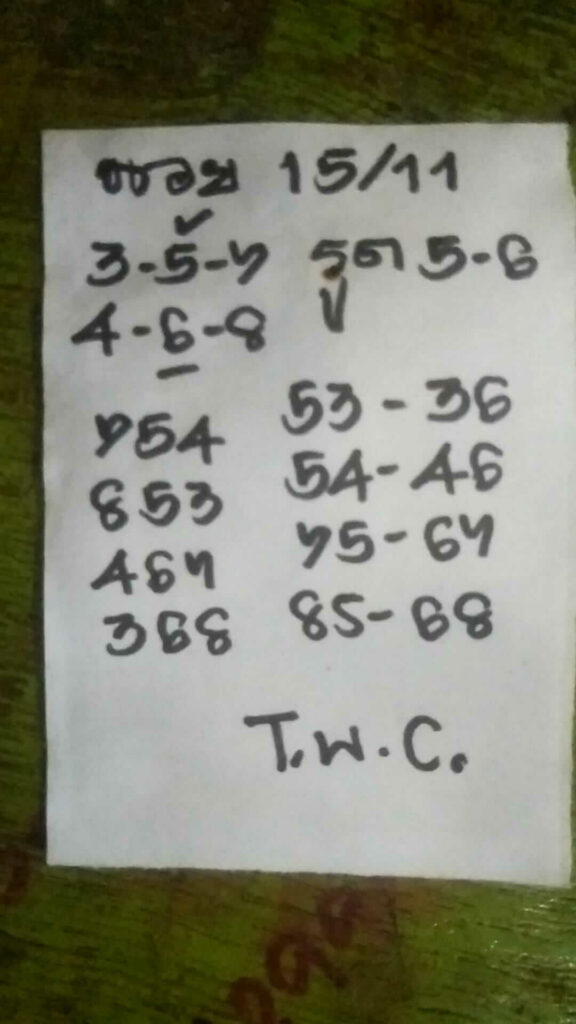 หวย 15/11
3-5-7 รูด 5-6
4-6-8
754 53-36
853 54-46
467 75-67
368 85-68
T.W.C.